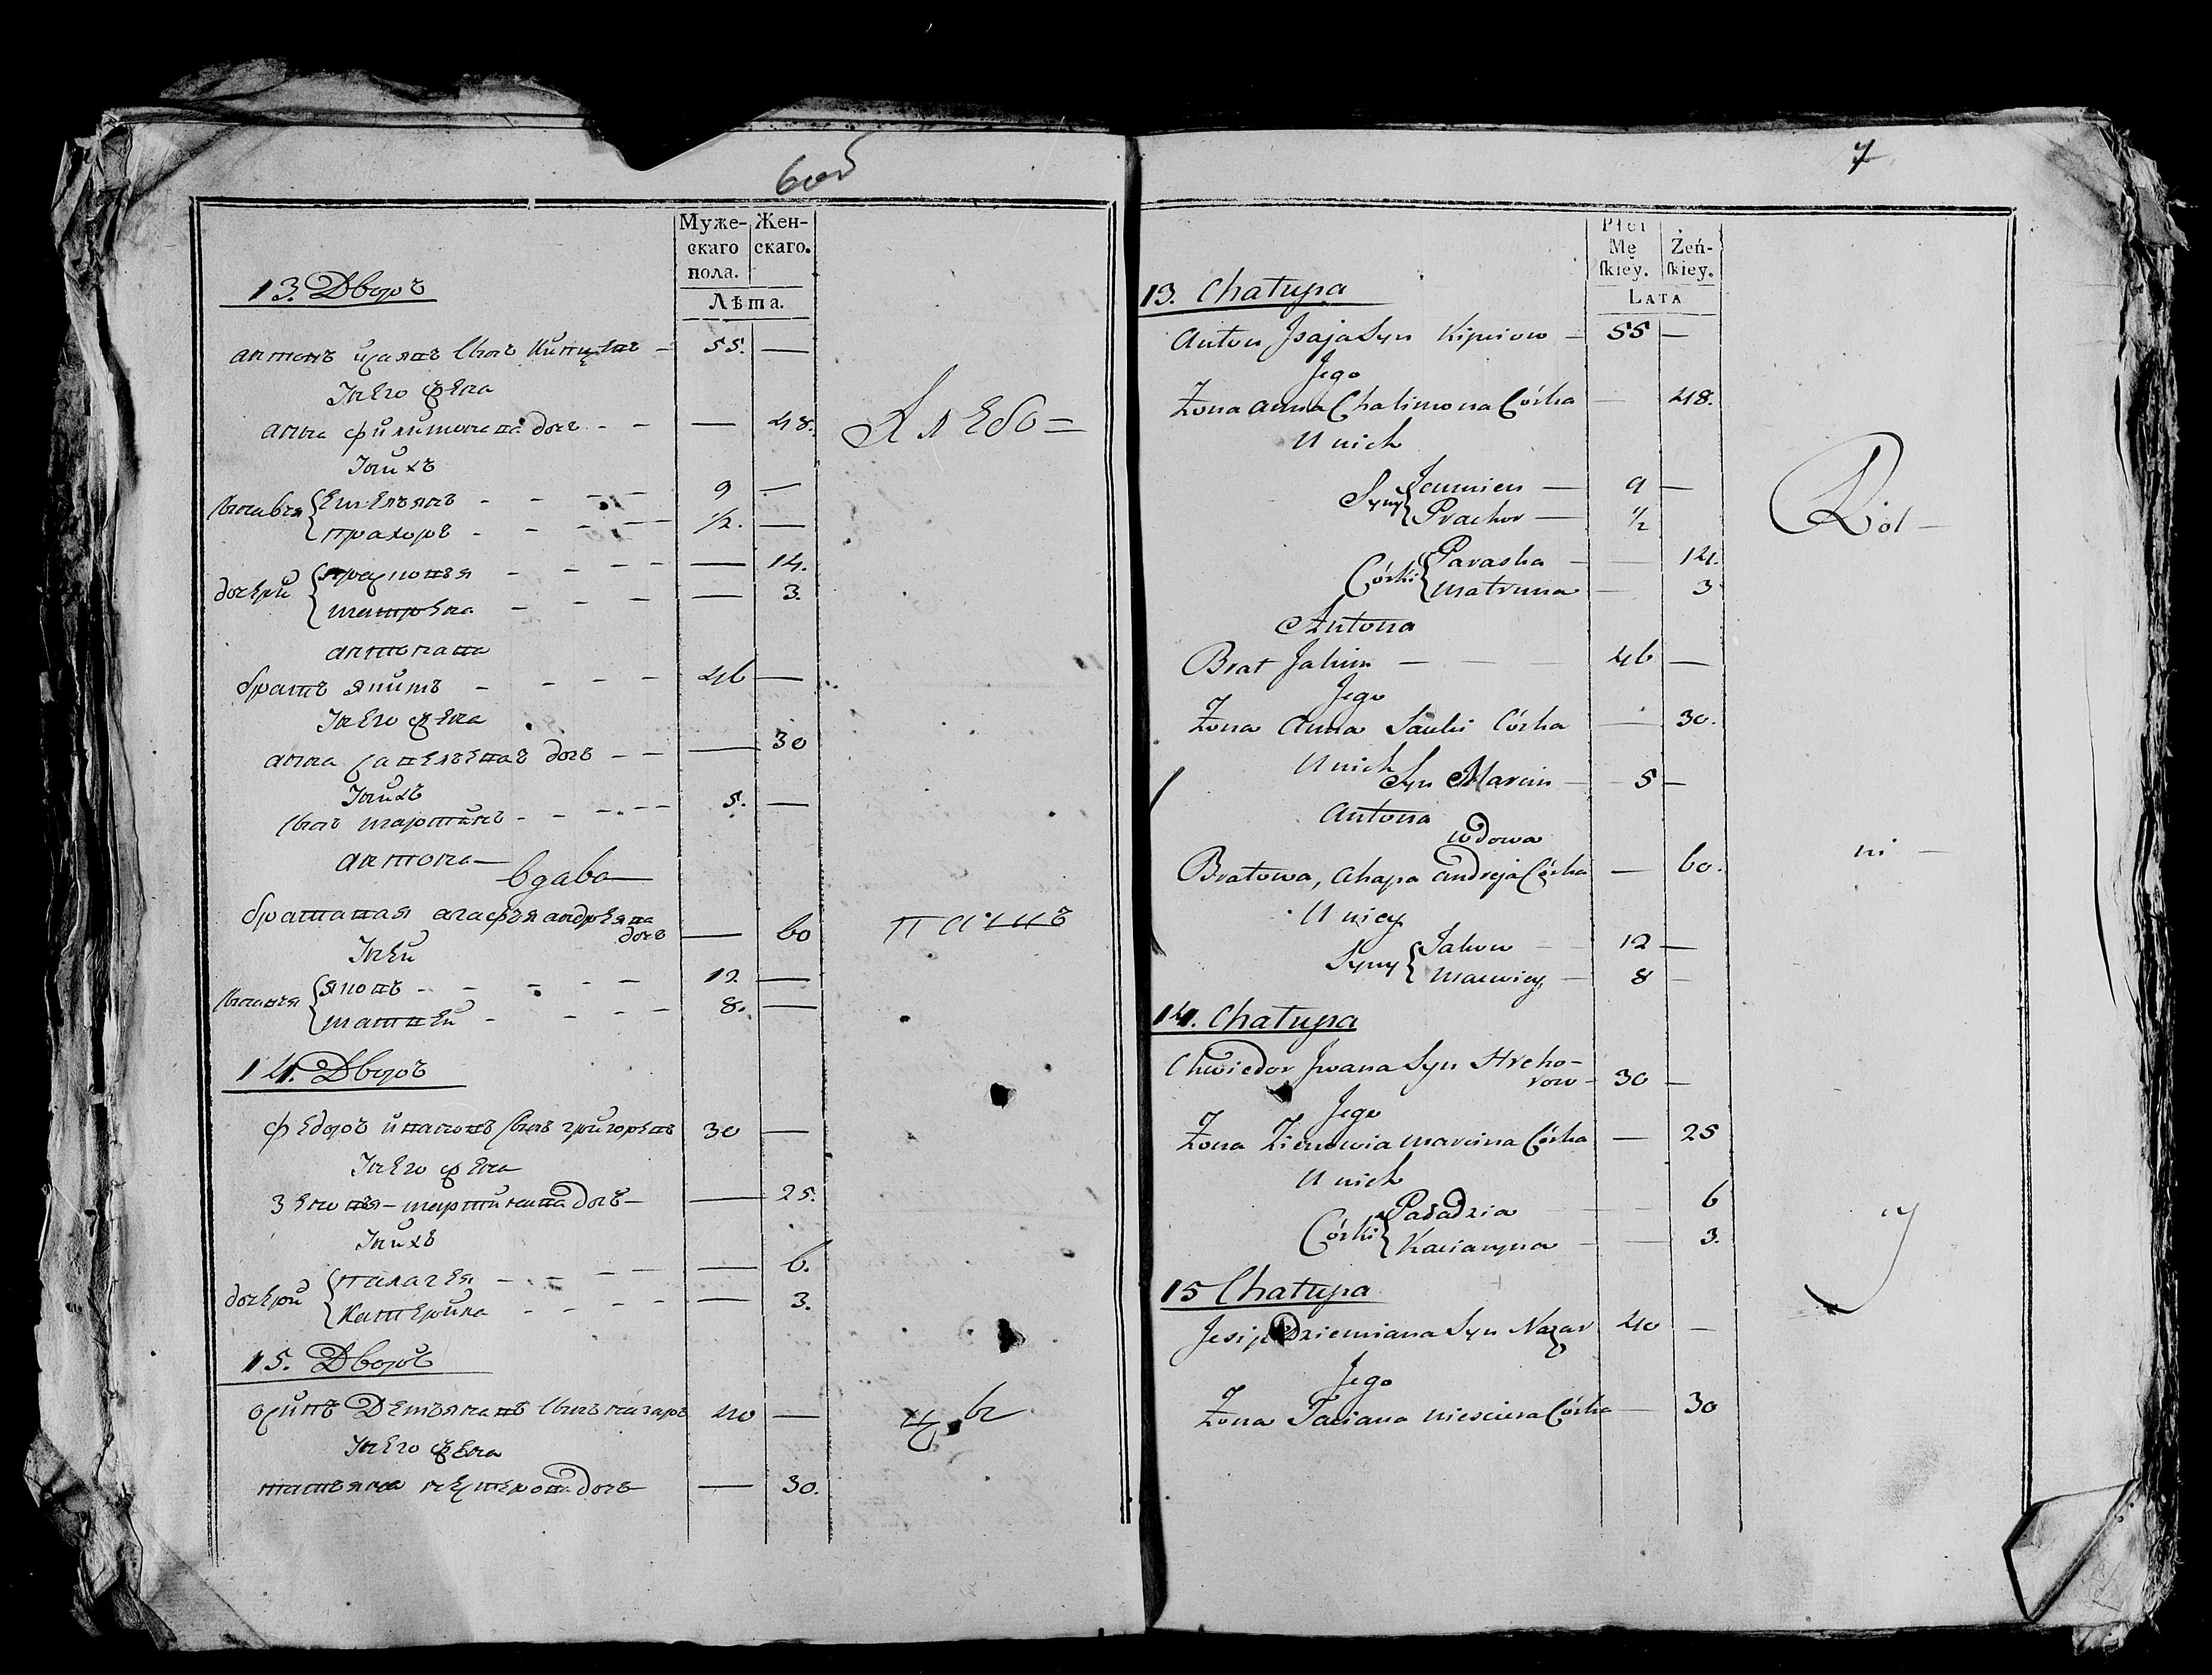 6об
Муже-
скаго
пола.
Жен-
скаго.
Лѣта.
13. Дворъ
антонъ исаявъ сынъ 55. —
у него жена
анна филимонова дочь — 48.
у нихъ
сыновья емельянъ 9 —
прохоръ 1/2. —
дочери — 14.
матрена — 3.
антонава
братъ якимъ 46 —
у него жена
анна савельева дочь — 30
у нихъ
сынъ мартинъ 5. —
антона
вдава
братавая агафья андреява
дочь — 60
у ней
сыновья яковъ 12 —
матвей 8. —
14. Дворъ
федоръ ивановъ сынъ григоревъ 30 —
у него жена
зеновья мартинава дочь — 25.
у нихъ
дочери палагея — 6.
катерина — 3.
15. Дворъ
осипъ Демьянавъ сынъ назаръ 40 —
у него жена
татьяна нестерова дочь — 30.
Хлебо=
пашъ
цы
7
Płci
Mę
skiey.
Żeń-
skiey.
LATA
13. Chałupa
Anton Jsaja Syn Kipniow — 55 —
Jego
Żona Anna Chalimona Córka — 48.
U nich
Syny Jeumien — 9 —
Prachor — 1/2
Córki Paraska — 14.
Matruna — 3
Antona
Brat Jakim — 46 —
Jego
Żona Anna Sauki Córka — 30.
U nich Syn Marcin — 5 —
Antona
wdowa
Bratowa, Ahapa Andreja Córka — 60.
U niey
Syny Jakow — 12 —
Maciviey — 8 —
14. Chałupa
Chwiedor Jwana Syn Hreho-
row — 30 —
Jego
Żona Zienowia Marcina Córka — 25
U nich
Córki Paładzia — 6
Kaciaryna — 3.
15 Chałupa
Jesip Dziemiana Syn Nazar 40 —
Jego
Żona Taciana Niesciera Córka — 30
Rol—
ni—
cy